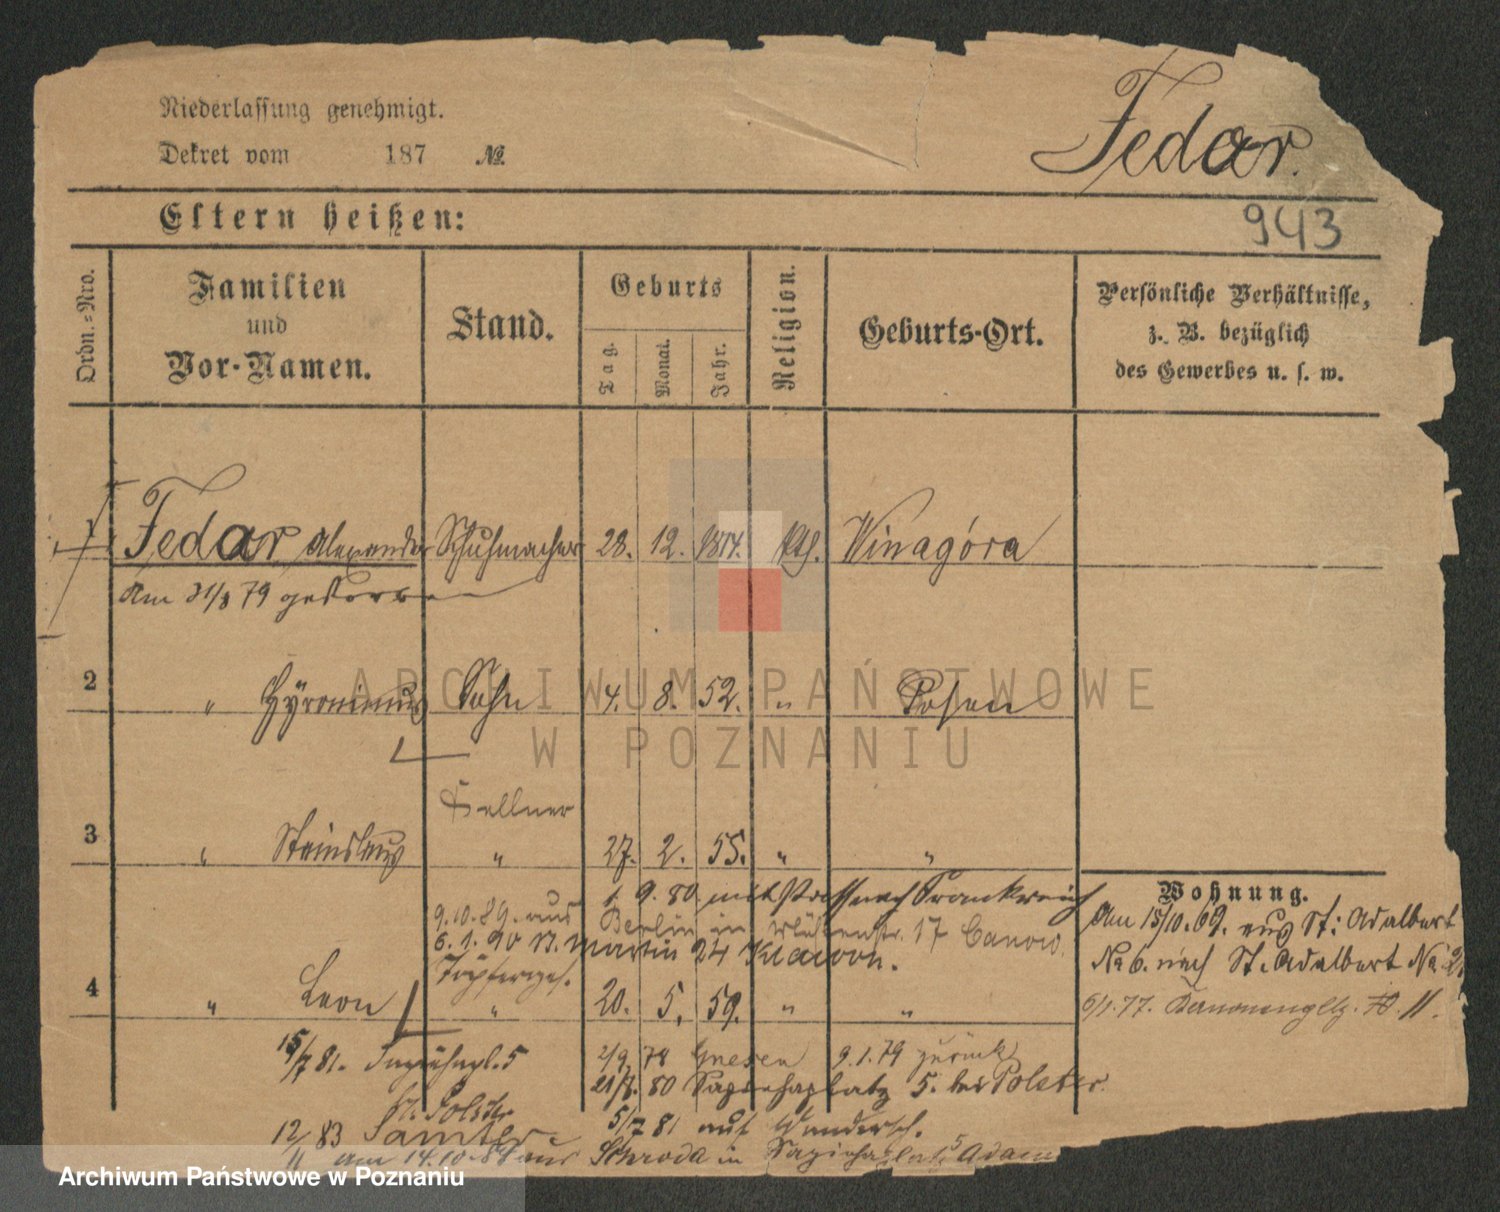 Niederlassung genehmigt.
Dekret vom 187 №
Fedar.
Eltern heißen:
943
Ordn.-Nro.
Familien und Vor-Namen.
Stand.
Geburts
Tag.
Monat.
Jahr.
Religion.
Geburts-Ort.
Persönliche Verhältnisse, z. B. bezüglich des Gewerbes u. s. w.
1 Fedar Alexander Schuhmacher 28. 12. 1814. kth. Winagóra
Am 31/8 79 gestorben
2 " Hyronimus Sohn 4. 8. 52. " Posen
Kellner
3 " Stainslaus " 27. 2. 55. " "
1. 9. 80 nach Frankreich
Wohnung.
9.10.89. aus Berlin in 17 Canow.
6. 1. 90 St. Martin 24
Am 15/10. 69. aus St: Adalbert
No 6. nach St. Adalbert No 2
Töpferges.
4 " Leon " 20. 5. 59. " "
6/1. 77. 11.
15/7 81. 5
2/9. 78 Gnesen 9. 1. 79 zurück
21/8. 80 Sapiehaplatz 5. bei Polster.
b. Polster
5/7 81 auf Wandersch.
12/11 83 Samter
am 14.10.84 aus Schroda in Sapiehaplatz 5 Adam
ARCHIWUM PAŃSTWOWE
W POZNANIU
Archiwum Państwowe w Poznaniu